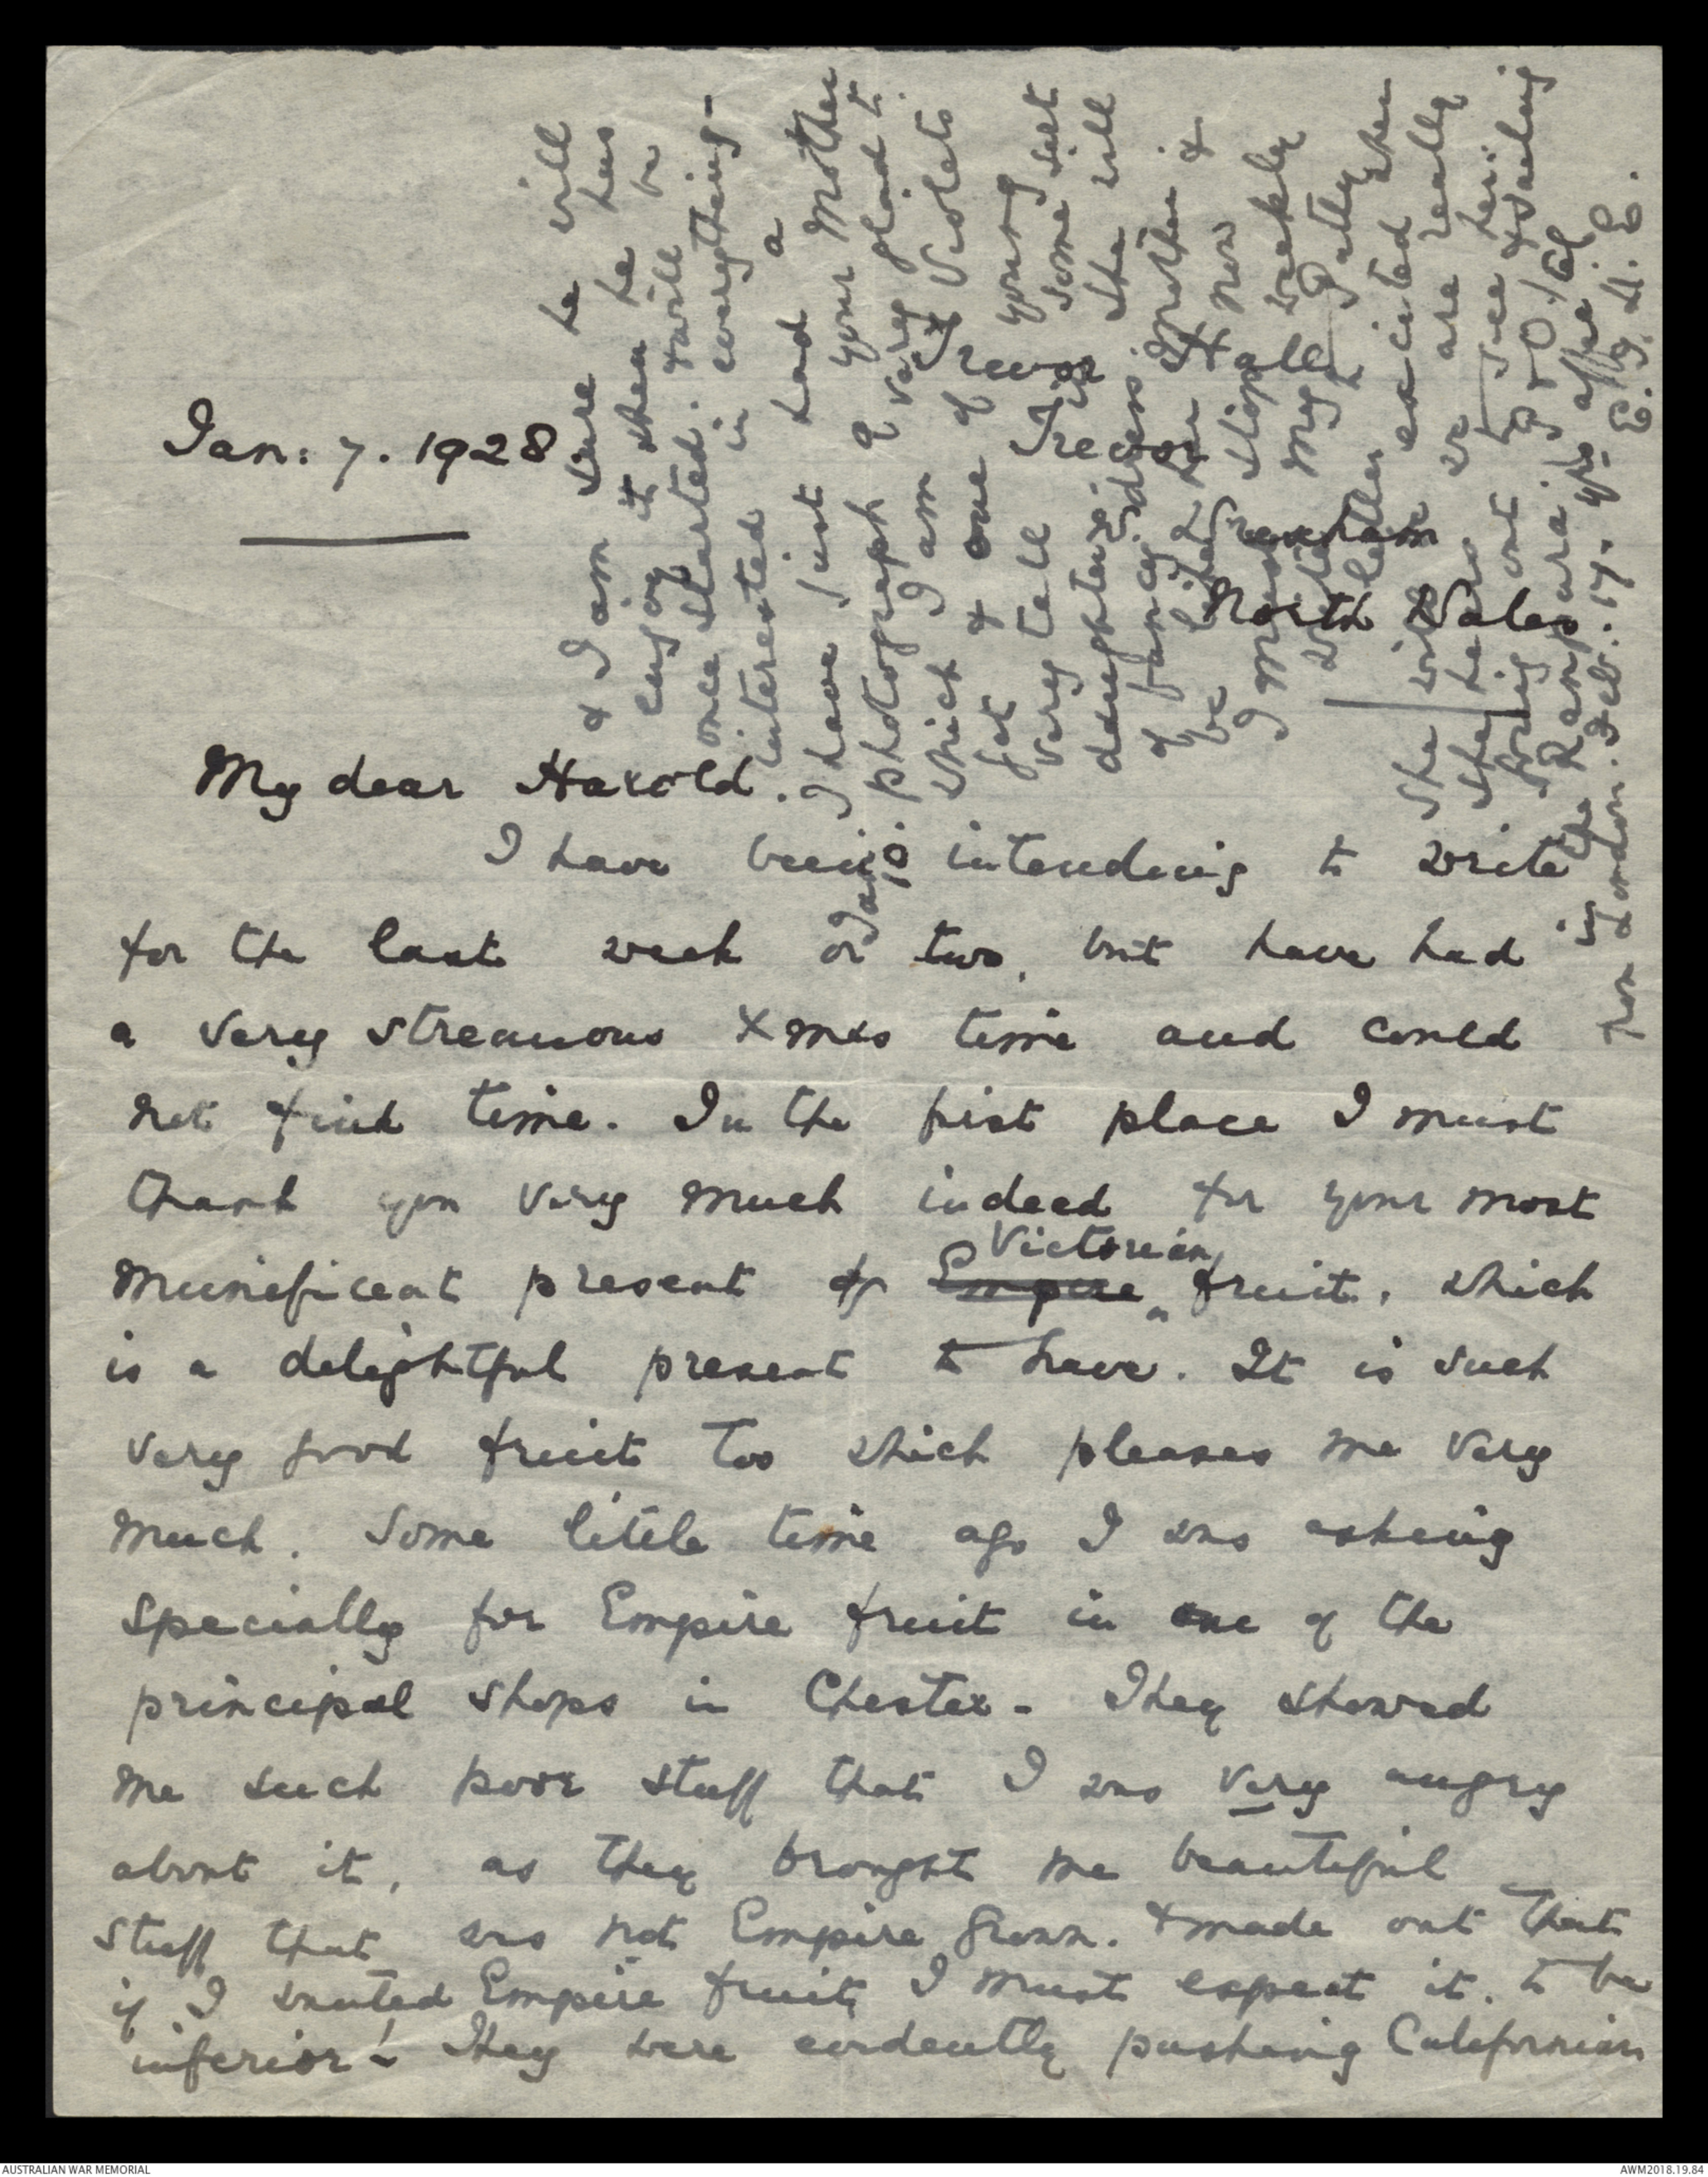 Jan: 7. 1928
Trevor Hall
Trevor
Wrexham
North Wales.
My dear Harold.
I have been intending to write
for the last week or two, but have had
a very strenuous Xmas time and could
not find time. In the first place I must
thank you very much indeed for your most
Victorian
munificent present of Empire fruit, which
is a delightful present to have. It is such
very good fruit too which pleases me very
much. Some little time ago I was asking
specially for Empire fruit in one of the
principal shops in Chester - They showed
me such poor stuff that I was very angry
about it, as they brought me beautiful
stuff that was not Empire grown. & made out that
if I wanted Empire fruit I must expect it. to be
inferior! They were evidently pushing Californian
& I am sure he will
enjoy it when he has
once started. & will be
interested in everything -
Jan: 10. I have just had a
photograph of your Mother
which I am very glad to
get & one of Violet's
very tall young
daughter. in some sort
of fancy dress. She will
be like her Mother &
I must stop now &
write my weekly
letter to Patty.
She will be excited when
she hears we are really
going out to see her:
in the Ranpura. P & O. sailing
from London. Feb. 17. yrs affec:
E. G. H. E.